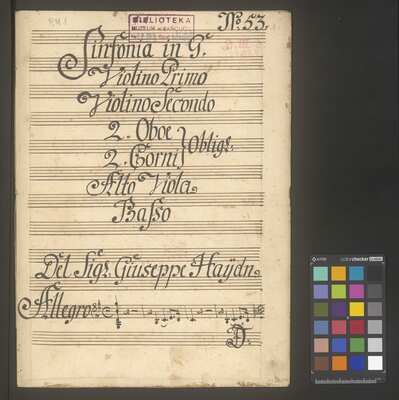 No. 53.
BIBLIOTEKA
Sinfonia in G.
Violino Primo
Violino Secondo
2. Oboe
2. Corni
Obligt.
Alto Viola
Basso
Del Sigr. Giuseppe Haydn
Allegro
D.
colorchecker